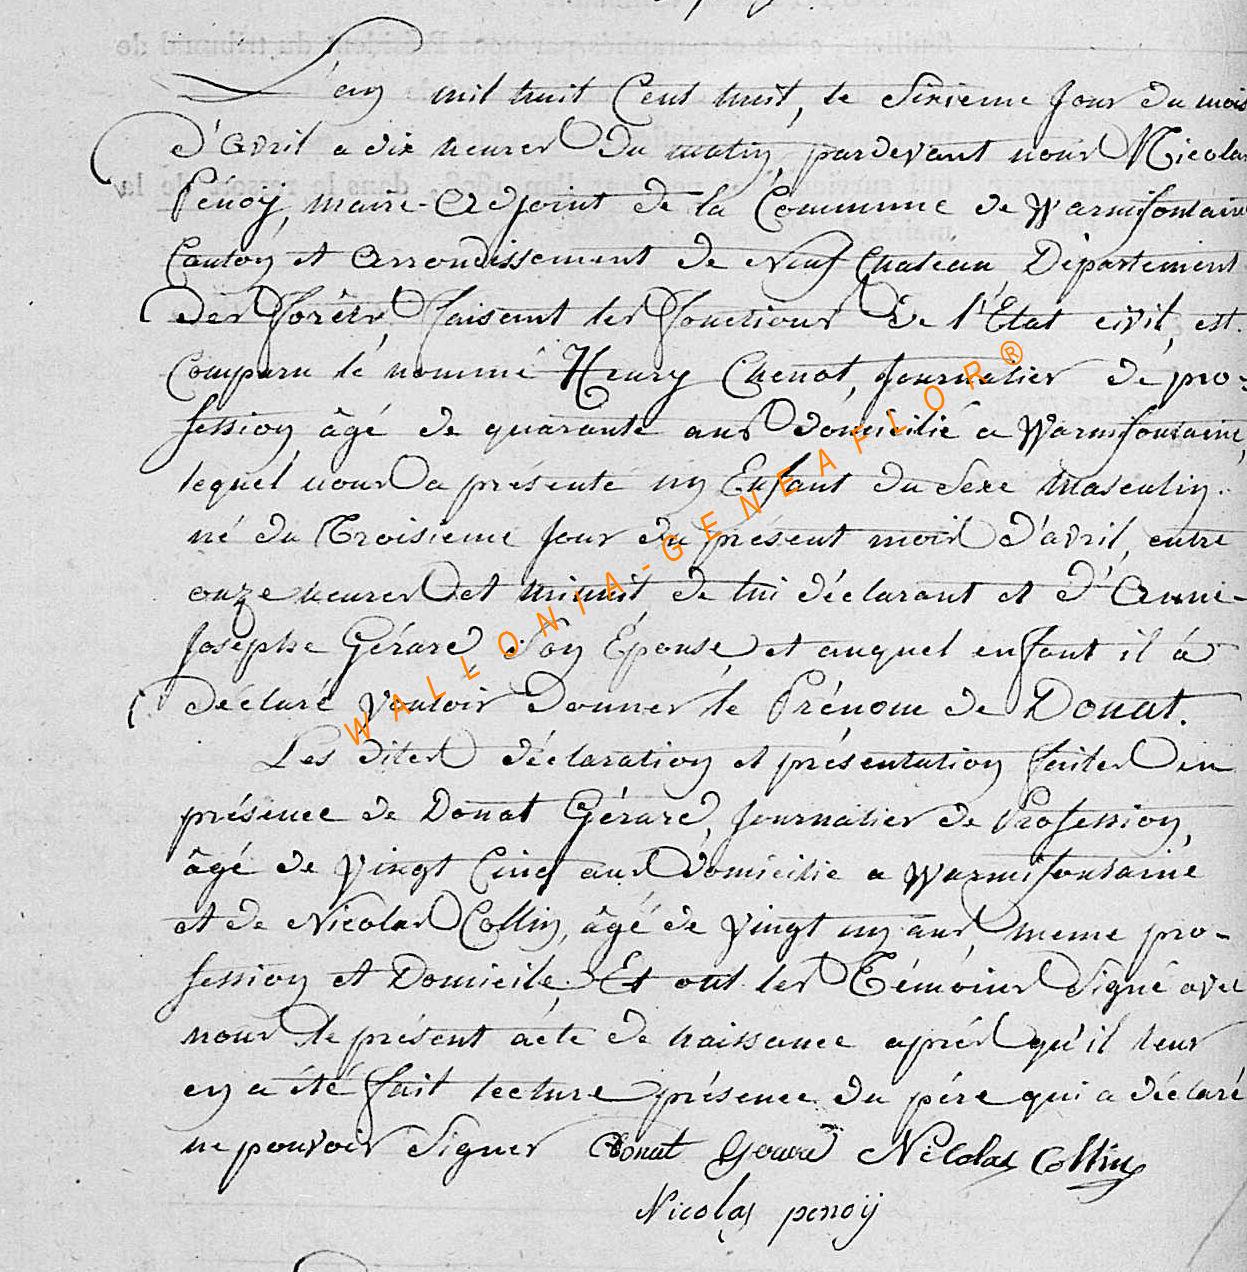 L'an mil huit Cent huit, le Sixieme Jour du mois
D'avril a dix heures Du matin, pardevant nous Nicolas
Pénoy, maire-Adjoint de la Commune de Warmifontaine
Canton et Arrondissement de Neuf Chateau Département
Des forêts, faisant les fonctions De l'Etat civil, est
Comparu lé nommé Henry Chenot, Journalier dé pro-
fession, âgé de quarante ans domicilié a Warmifontaine,
lequel nous a présenté un Enfant du Sexe Masculin.
né du Troisieme Jour du présent mois D'avril, entre
onze heures et minuit, de lui déclarant et d'Anne-
Josephe Gérard Son Épouse, et auquel enfant il á
déclaré Vouloir Donner le Prénom de Donat.
Les dites déclaration et présentation faites en
présence de Donat Gérard, Journalier de Profession,
âgé de Vingt Cinq ans Domicilie a Warmifontaine
et de Nicolas Collin, âgé de Vingt un ans, meme pro-
fession et Domicile. Et ont les Témoins Signé avec
nous le présent acte de naissance aprés qu'il leur
en a été fait lecture présence du pére qui a déclaré
ne pouvoir Signer Donat Gerard Nicolas Collin
Nicolas penoÿ
WALLONIA-GENEAFLOR®